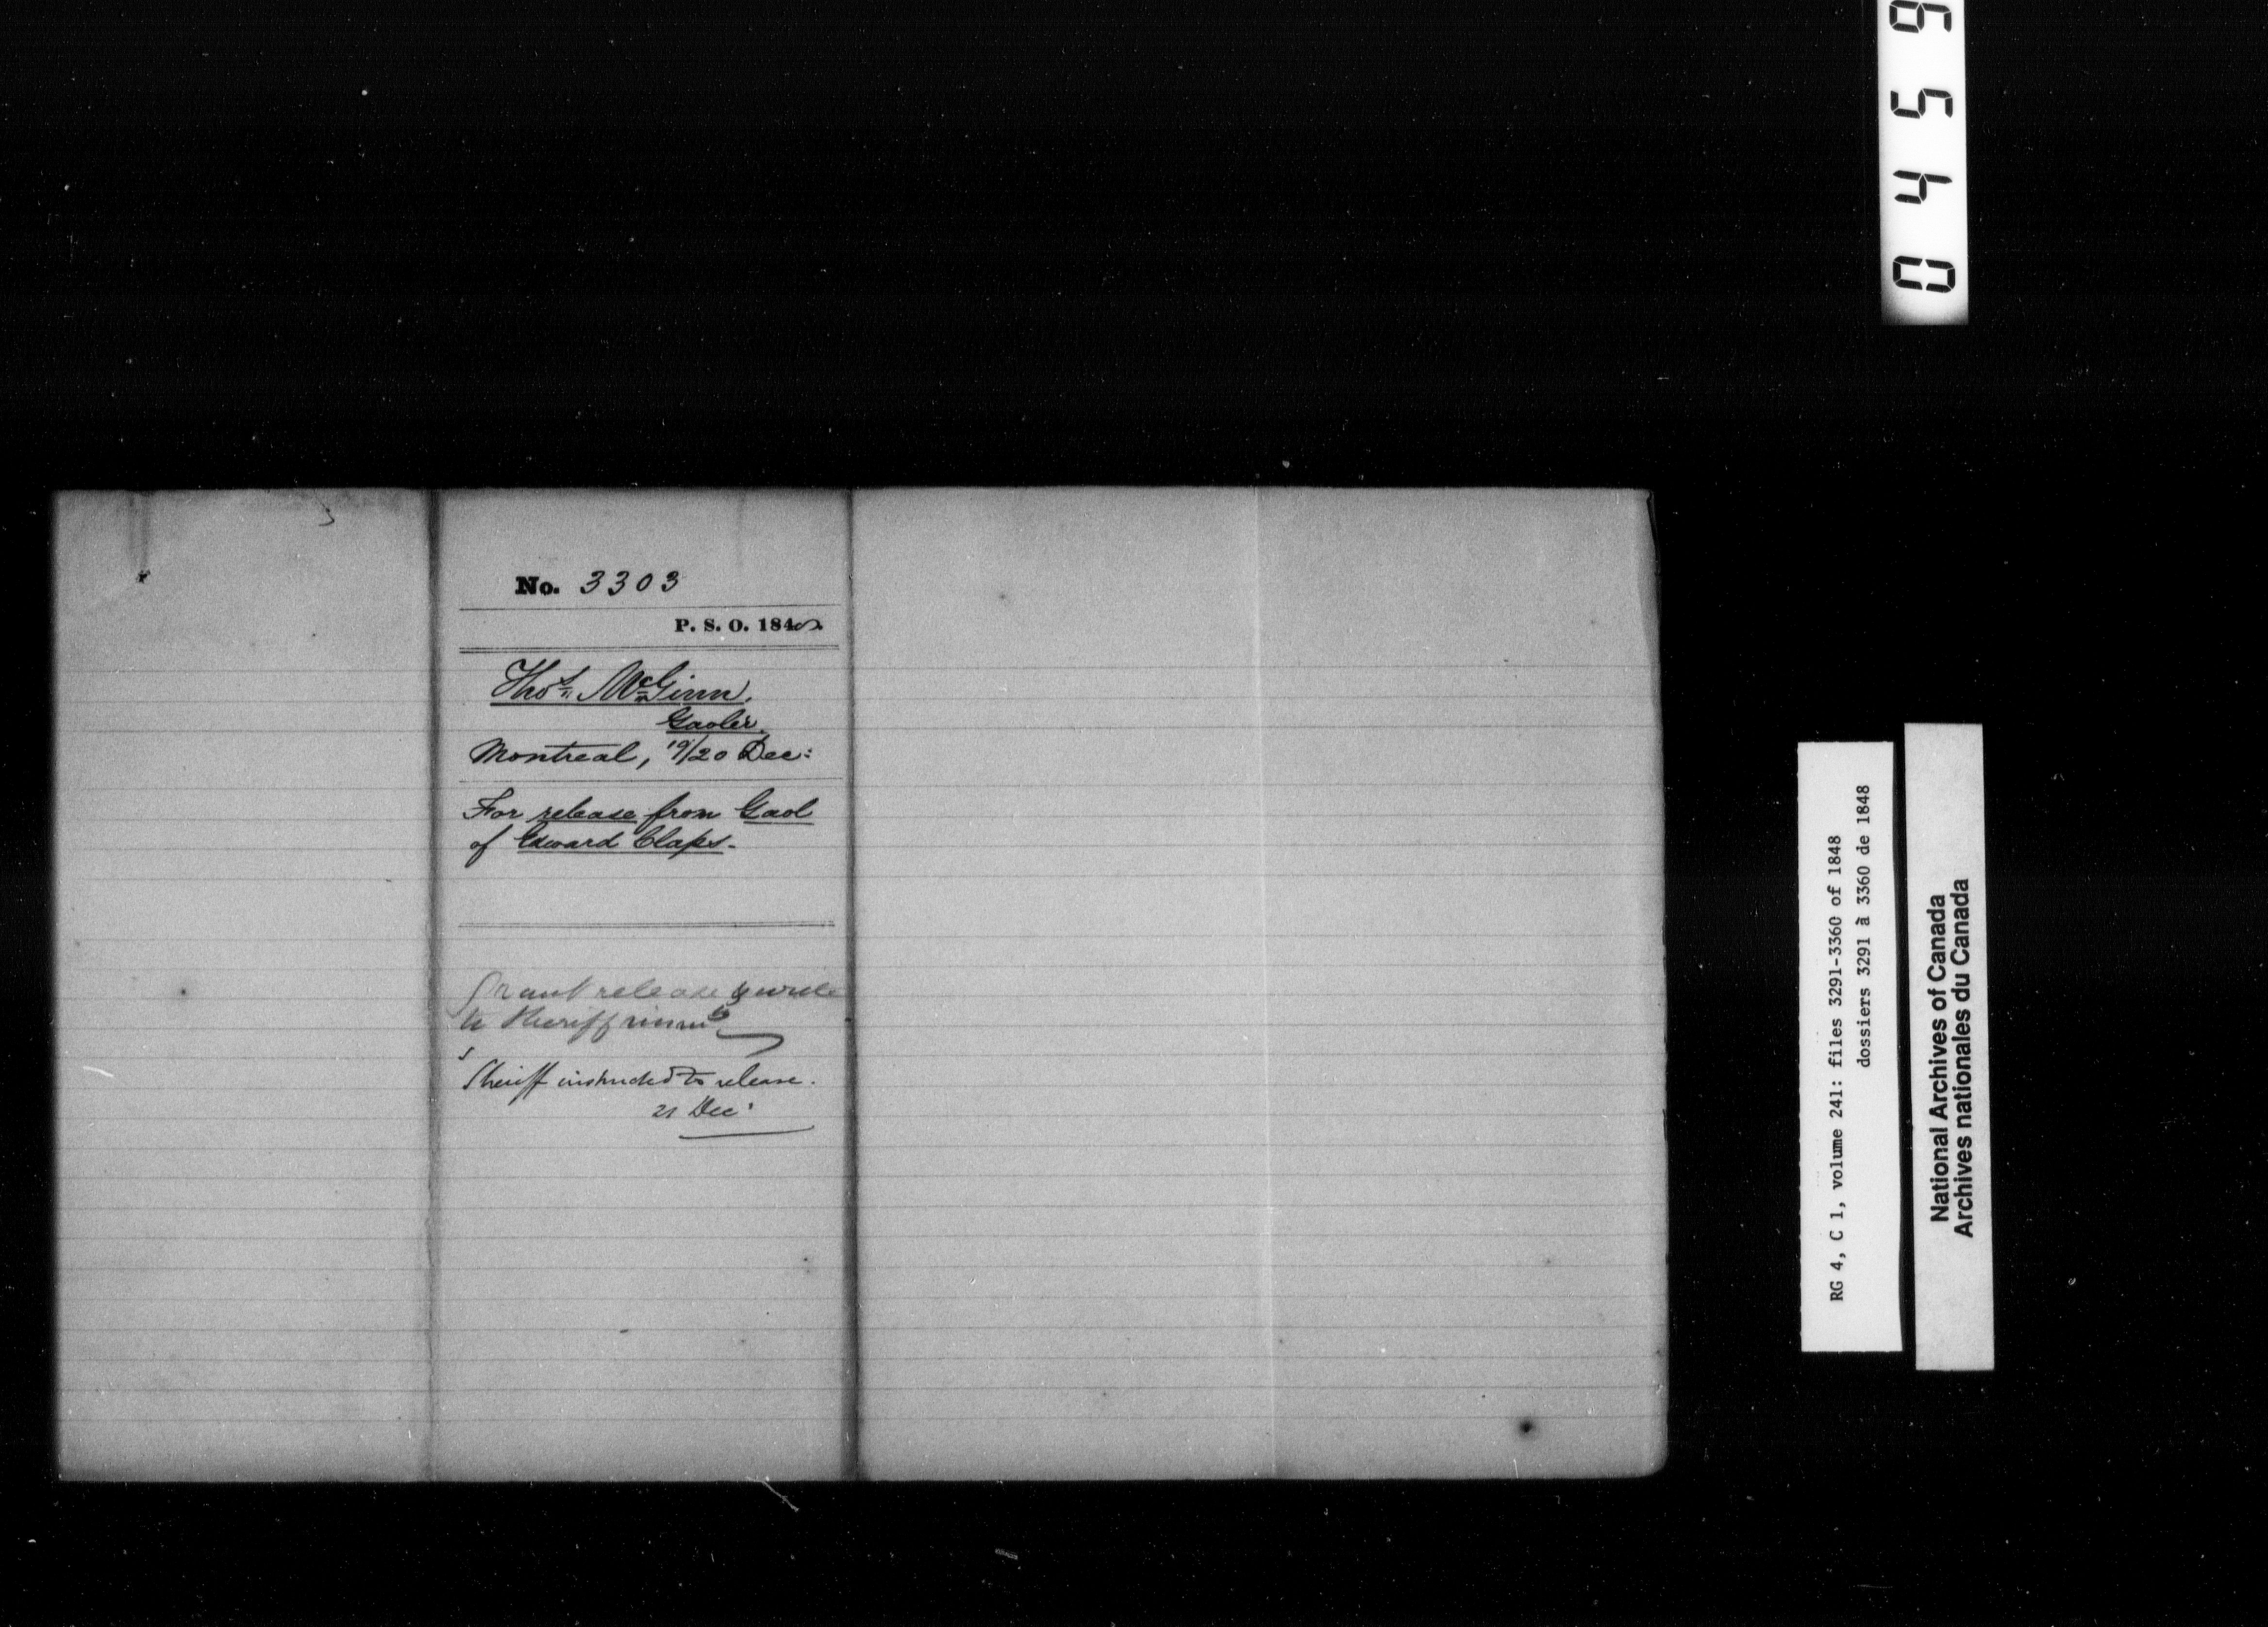 No. 3303
P. S. O. 1848
Thos. McGinn.
Gaoler.
Montreal, 19/20 Dec:
For release from Gaol
of Edward Claps.
Grant release & write
to Sheriff
Sheriff instructed to release.
21 Dec:
0459
RG 4, C 1, volume 241: files 3291-3360 of 1848
dossiers 3291 à 3360 de 1848
National Archives of Canada
Archives nationales du Canada